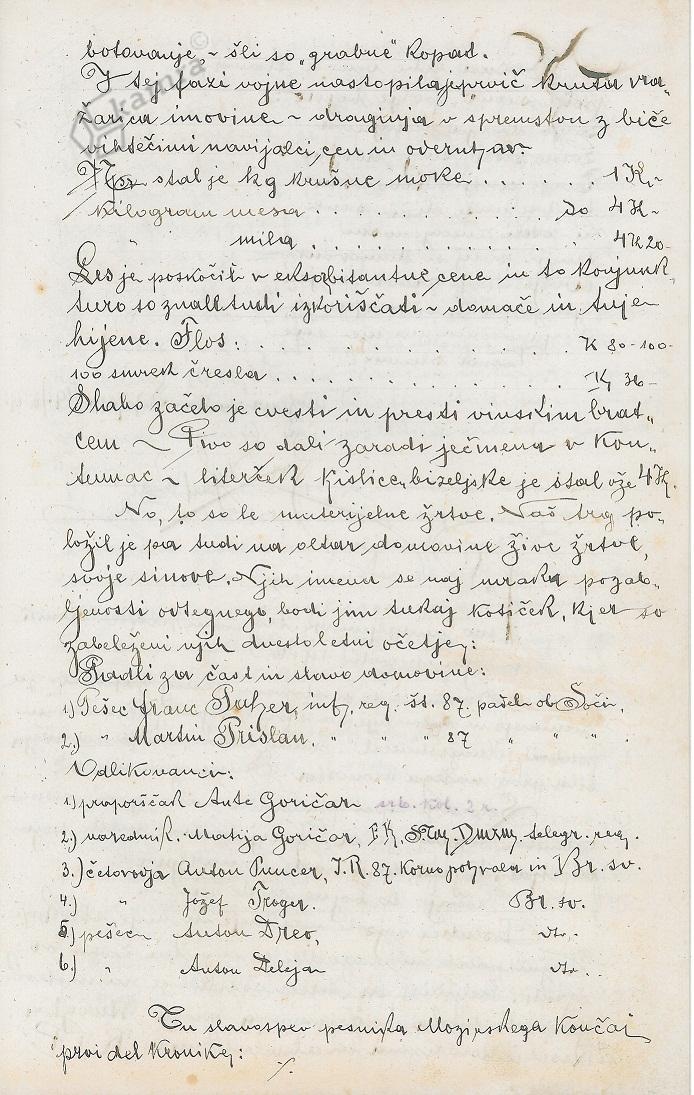 botovanje, - šli so „grabne" kopad.
V tej fazi vojne nastopila je prvič kruta vra„
žarica imovine - draginja v spremstvu z biče
vihtečimi navijalci cen in oderuhov.
Npr. stal je kg krušne moke . . . . . . 1 K.-
kilogram mesa . . . . . . . . . . do 4 K-
" mila . . . . . . . . . . . . 4 K 20-
Les je poskočil v eksorbitantne cene in to konjunk„
turo so znali tudi izkoriščati - domače in tuje
hijene. Flos. . . . . . . . . . . . . K 80-100-
100 smrek čresla . . . . . . . . . . . . K 36-
Slabo začelo je cvesti in presti vinskim brat„
cem - Pivo so dali zaradi ječmena v kon„
tumac - literček kislice bizeljske je stal že 4 K.
No, to so le materijelne žrtve. Naš trg po„
ložil je pa tudi na oltar domovine žive žrtve,
svoje sinove. Njih imena se naj mraku pozab„
ljenosti odtegnejo, bodi jim tukaj kotiček, kjer so
zabeleženi njih dvestoletni očetje:
Padli za čast in slavo domovine:
1) Pešec Franc Putzer, inf. reg. št. 87. padel ob Soči,
2.) " Martin Prislan, " " " 87 " " " .
Odlikovanci:
1) praporščak Ante Goričar srb. kol. 2 r.
2.) narednik. Matija Goričar, telegr. reg.
3.) četovodja Anton Puncer, I. R. 87. Br. sv.
4.) " Jožef Troger. Br. sv.
5.) pešec Anton Drev, dto.
6.) " Anton Delejan dto. .
Tu slavospev pesnika Mozirskega končaj
prvi del kronike:
./.
kamra ©